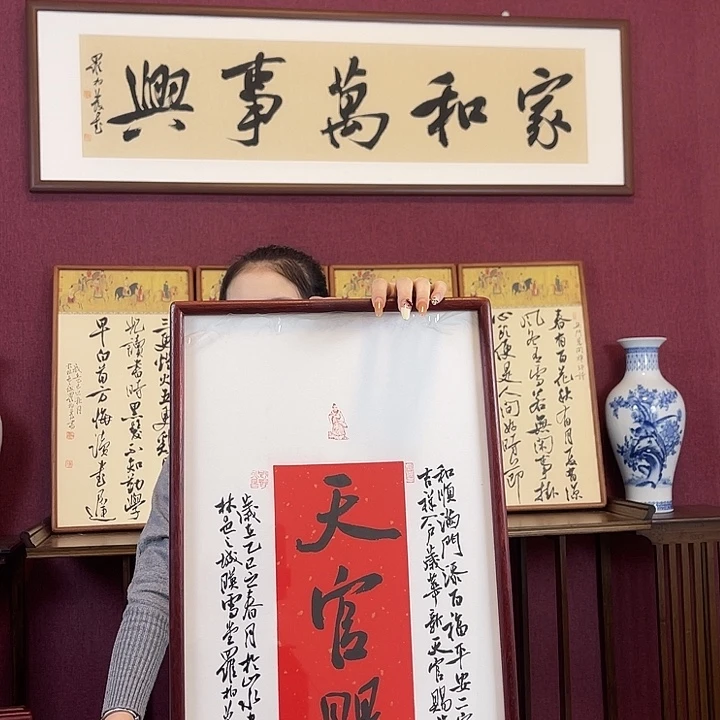 家和萬事興
早白首方悔讀書遲
三更燈火五更雞
讀書時黑髮不知勤學
春有百花秋有月夏有涼
風冬有雪若無閑事掛
心頭便是人間好時節
和順滿門添百福平安二字
吉祥如意歲華新天官賜
天官賜
歲在乙巳之春月於山水
林邑之城暎雪堂羅柏